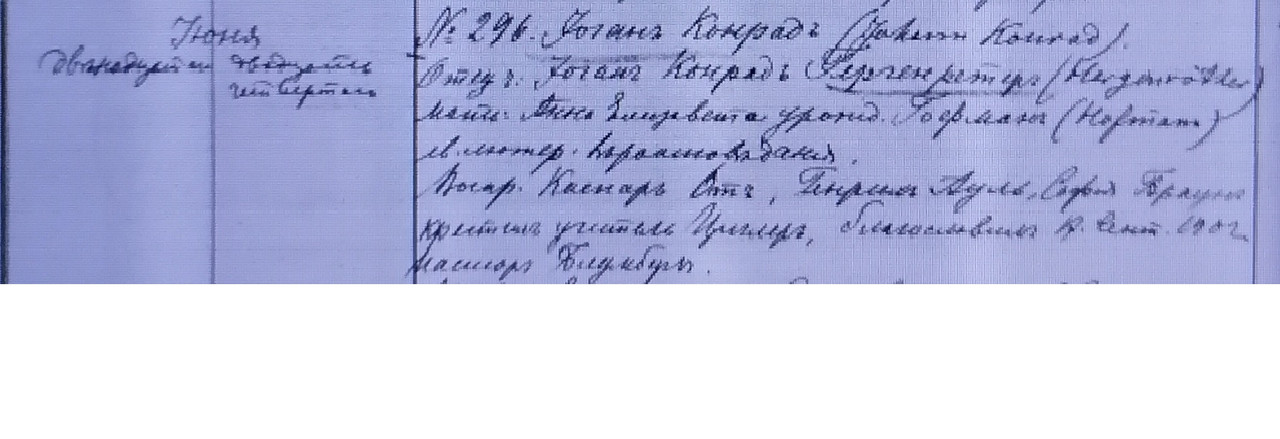 Июня
двенадцатаго двадцать
четвертаго
№ 296. Иоганъ Конрадъ (Johann Konrad).
Отецъ: Иоганъ Конрадъ Гергенретеръ (Hergenröther)
мать: Анна Елизавета урожд. Гофманъ (Hofmann)
ев. лютер. вѣроисповѣданія.
Воспр. Каспаръ Отъ, Генрихъ Ауль, Софія Браунъ
крестилъ учитель Циглеръ, благословилъ 8. Сент. 1902 г.
пасторъ Блумбергъ.